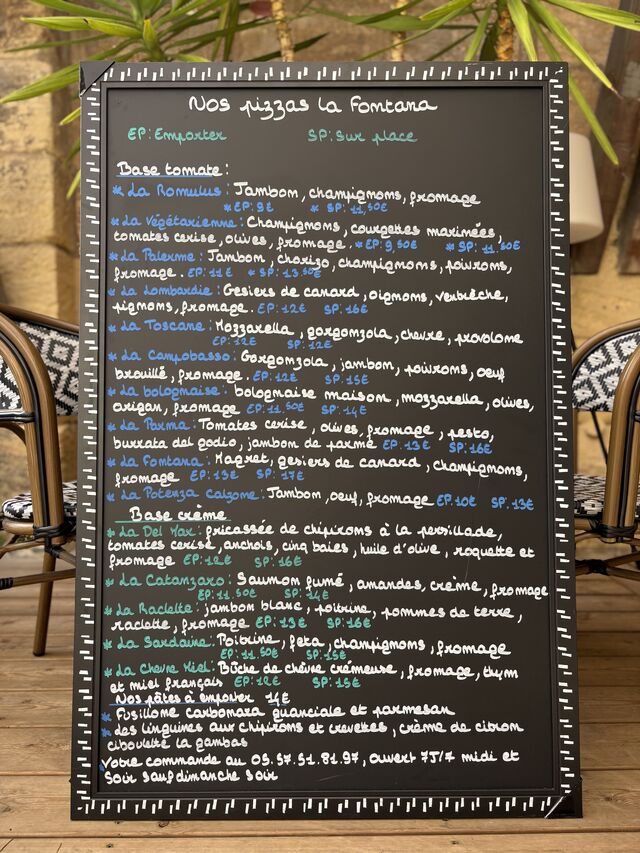 Nos pizzas la Fontana
EP: Emporter SP: Sur place
Base tomate:
* La Romulus: Jambom, champignoms, fromage
* EP: 9€ * SP: 11,50€
* La Végétarienne: Champignoms, courgettes marimées,
tomates cerise, olives, fromage. * EP: 9,50€ * SP: 11.50€
* La Palerme: Jambom, chorizo, champignoms, poivroms,
fromage. EP: 11€ * SP: 13.50€
* La Lombardie: Gesiers de canard, oignoms, ventrêche,
pignoms, fromage. EP: 12€ SP: 16€
* La Toscane: Mozzarella, gorgonzola, chevre, provolome
EP: 12€ SP: 12€
* La Campobasso: Gorgonzola, jambom, poivroms, oeuf
brouillé, fromage. EP: 12€ SP: 15€
* La bolognaise: bolognaise maisom, mozzarella, olives,
origan, fromage EP: 11.50€ SP: 14€
* La Parma: Tomates cerise, olives, fromage, pesto,
burrata del godio, jambom de parme EP: 13€ SP: 16€
* La Fontana: Magret, gesiers de canard, champignoms,
fromage EP: 13€ SP: 17€
* La Potenza Calzone: Jambom, oeuf, fromage EP: 10€ SP: 13€
Base crème
* La Del Mar: fricassée de chipirons à la persillade,
tomates cerise, anchois, cinq baies, huile d'olive, roquette et
fromage EP: 12€ SP: 16€
* La Catanzaro: Saumon fumé, amandes, crème, fromage
EP: 11.50€ SP: 14€
* La Raclette: jambom blanc, poitrine, pommes de terre,
raclette, fromage EP: 13€ SP: 16€
* La Sardaine: Poitrine, feta, champignoms, fromage
EP: 11.50€ SP: 15€
* La Chevre Miel: Bûche de chèvre crémeuse, fromage, thym
et miel français EP: 12€ SP: 15€
Nos pâtes à emporter 14€
* Fusillome carbomara guanciale et parmesan
* des linguines aux chipirons et crevettes, crème de citron
ciboulette la gambas
Votre commande au 05.57.51.81.97, ouvert 7J/7 midi et
Soir sauf dimanche soir